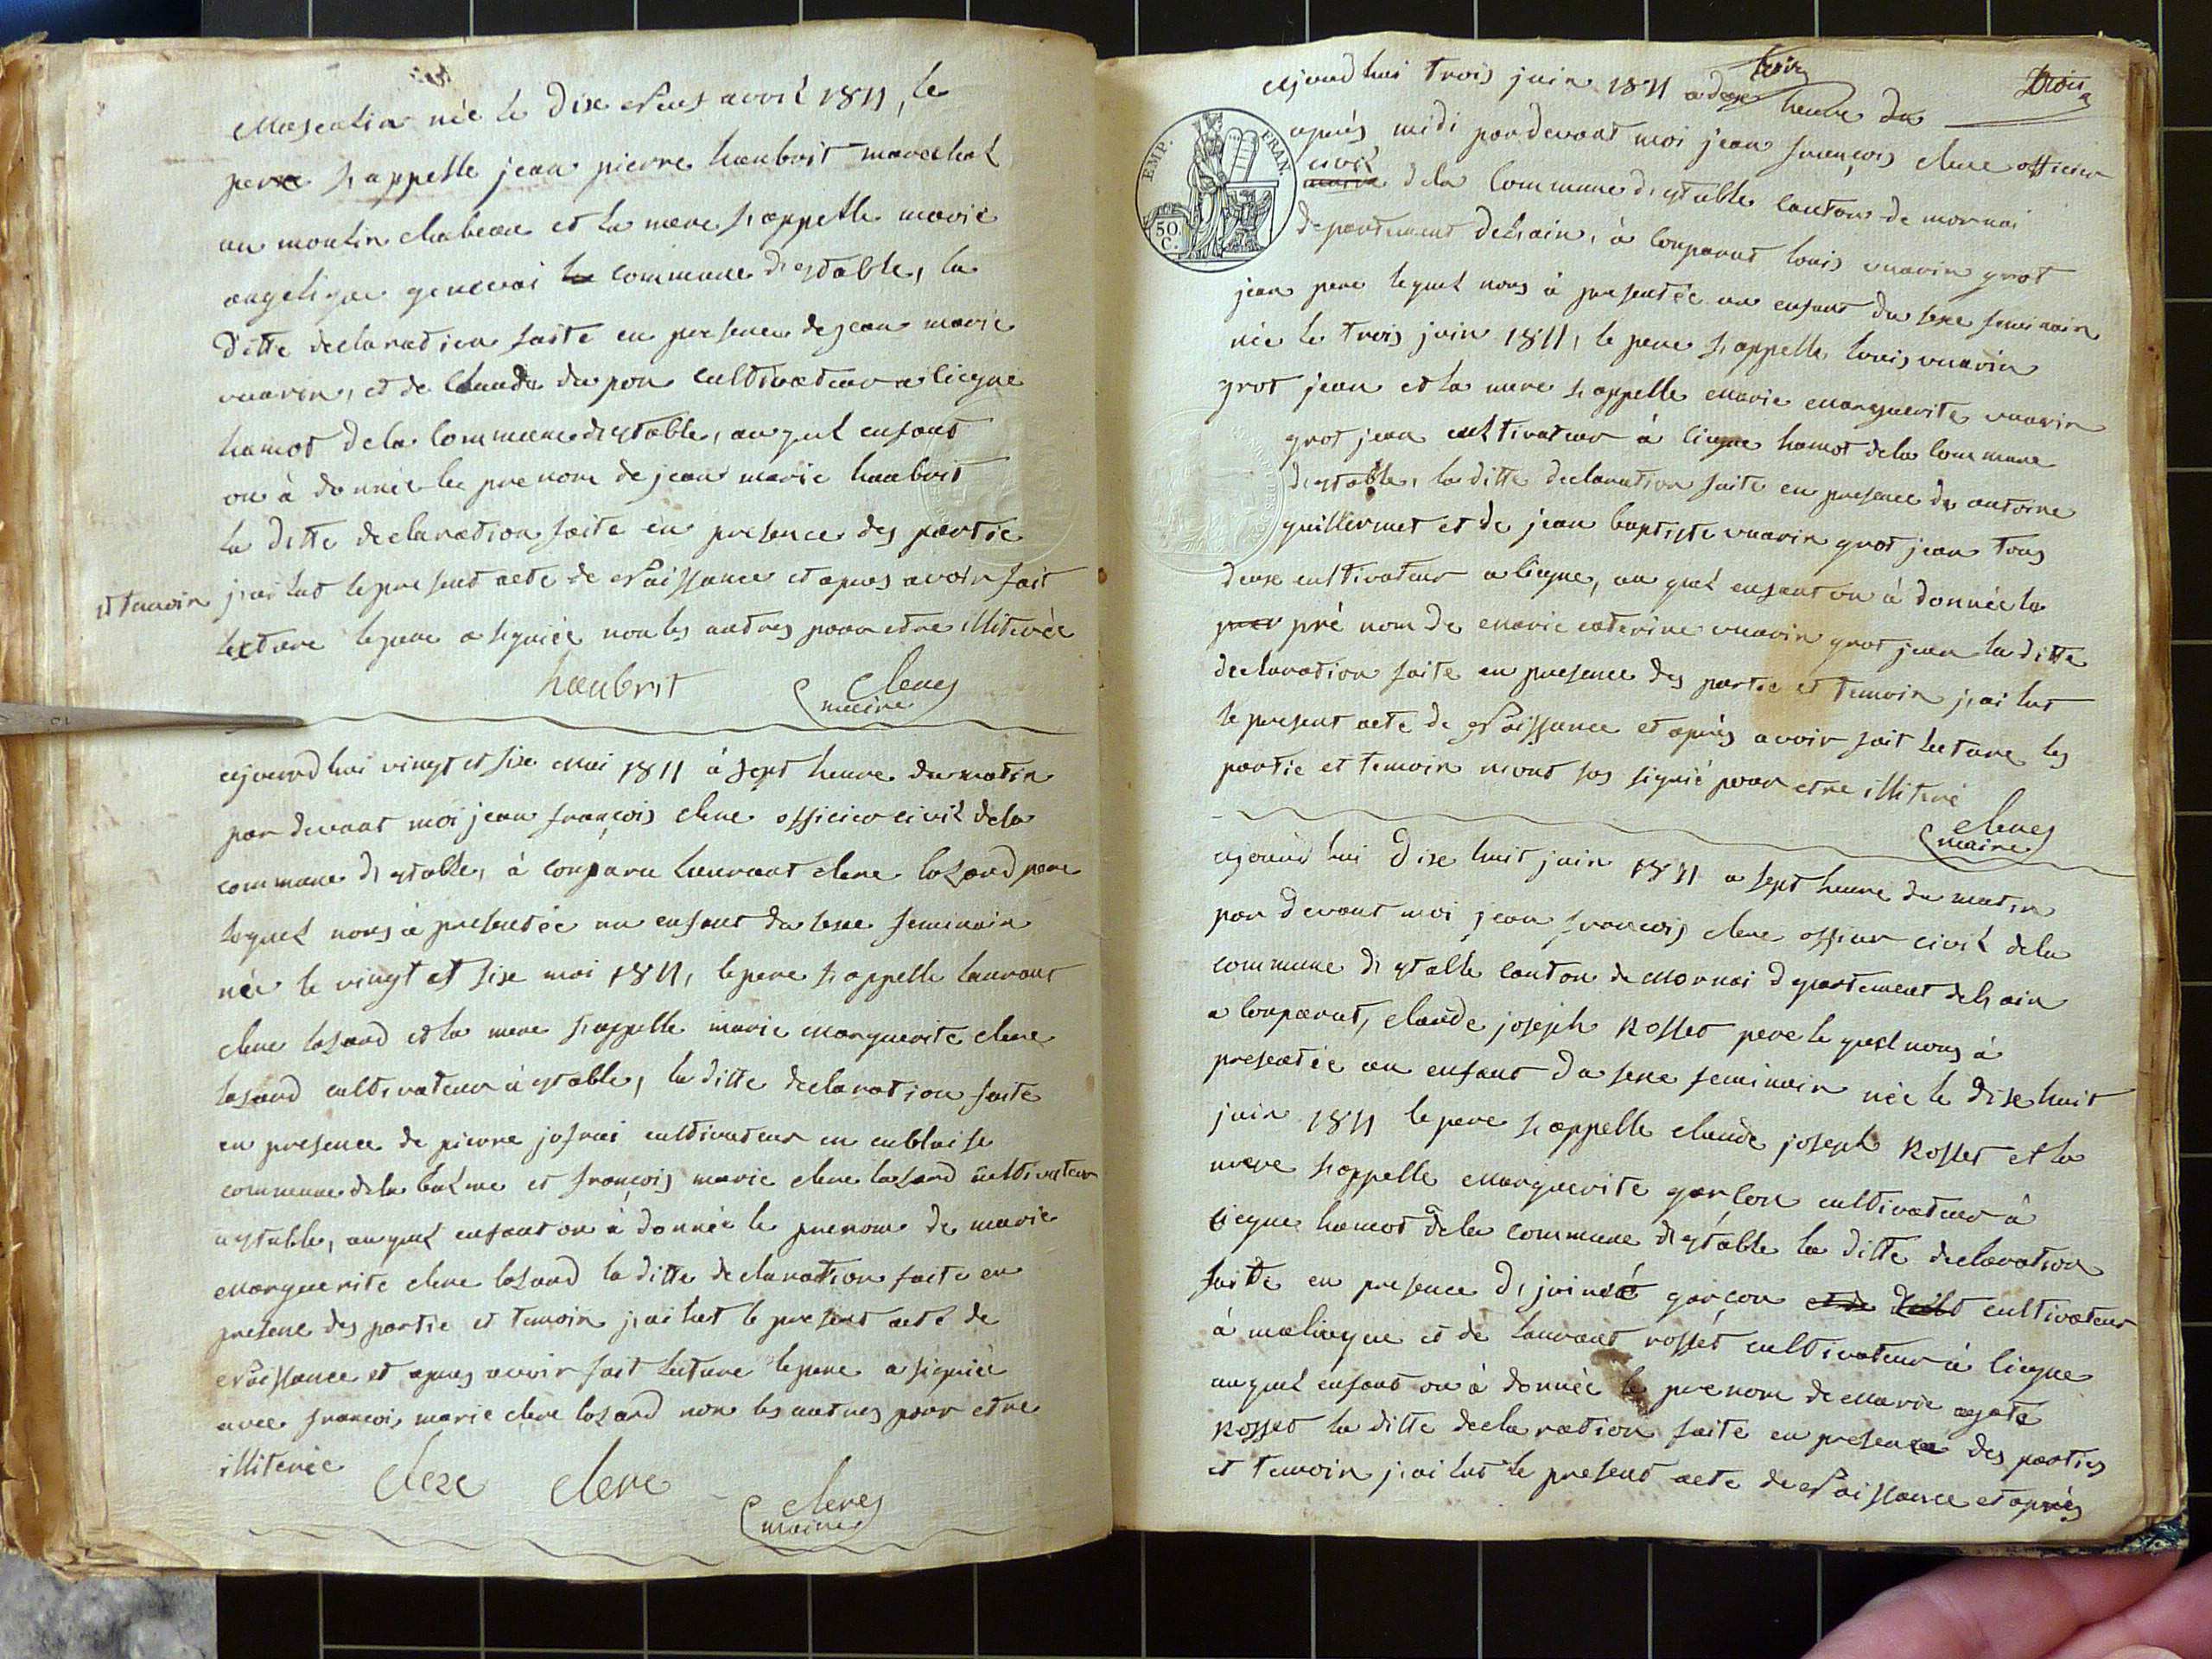 Masculin née le dixe neuf avril 1811, le
pere s'appelle jean pierre haubrit marechal
au moulin chabeau et la mere s'appelle marie
angelique genevai la commune d'estable, la
ditte declaration faite en presence de jean marie
vuarin, et de Claude du pon cultivateur a licque
hamot dela commune d'estable, au quel enfant
on à donnée le prenom de jean marie haubrit
la ditte declaration faite en presence des partie
et temoin j'ai lut le present acte de Naissance et apres avoir fait
lecture le pere a signiée non les autres pour etre illiterée
haubrit
clerc
maire
ajourd hui vingt et sixe Mai 1811 à sept heure du matin
par devant moi jean françois clerc officier civil dela
commune d'estable, à conparu laurant clerc lasard pere
lequel nous à presentée un enfant du sexe feminin
née le vingt et sixe mai 1811, le pere s'appelle laurant
clerc lasard et la mere s'appelle marie Marguerite clerc
lasard cultivateur à estable, la ditte declaration faite
en presence de pierre jofrai cultivateur en cublaise
commune dela balme et françois marie clerc lasard cultivateur
a estable, au quel enfant on à donnée le prenom de marie
Marguerite clerc lasard la ditte declaration faite en
presence des partie et temoin j'ai lut le present acte de
Naissance et apres avoir fait lecture le pere a signiée
avec françois marie clerc lasard non les autres pour etre
illiterée
clerc clerc
clerc
maire
trois
ajourd hui trois juin 1811 a deux heure du
après midi par devant moi jean françois clerc officier
civil
maire dela commune d'estable canton de mornai
departement del'ain, à comparut louis vuarin grot
jean pere lequel nous à presentée un enfant du sexe feminin
née le trois juin 1811, le pere s'appelle louis vuarin
grot jean et la mere s'appelle Marie Marguerite vuarin
grot jean cultivateur à licque hamot dela commune
d'estable, la ditte declaration faite en presence de antoine
guillermet et de jean baptiste vuarin grot jean tous
deux cultivateur a licque, au quel enfant on à donnée le
pré nom de Marie caterine vuarin grot jean la ditte
declaration faite en presence des partie et temoin j'ai lut
le present acte de Naissance et après avoir fait lecture les
partie et temoin n'ont pas signié pour etre illiteré
clerc
maire
ajourd hui dixe huit juin 1811 a sept heure du matin
par devant moi jean françois clerc officier civil dela
commune d'estable canton de Mornai departement del'ain
a conparut, claude joseph Rosset pere le quel nous à
presentée un enfant du sexe feminin née le dixe huit
juin 1811 le pere s'appelle claude joseph Rosset et la
mere s'appelle Marguerite garçon cultivateur à
licque hamot dela commune d'estable la ditte declaration
faite en presence de garçon et de cultivateur
à et de laurant rosset cultivateur à licque
au quel enfant on à donnée le prenom de Marie agate
Rosset la ditte declaration faite en presence des parties
et temoin j'ai lut le present acte de Naissance et après